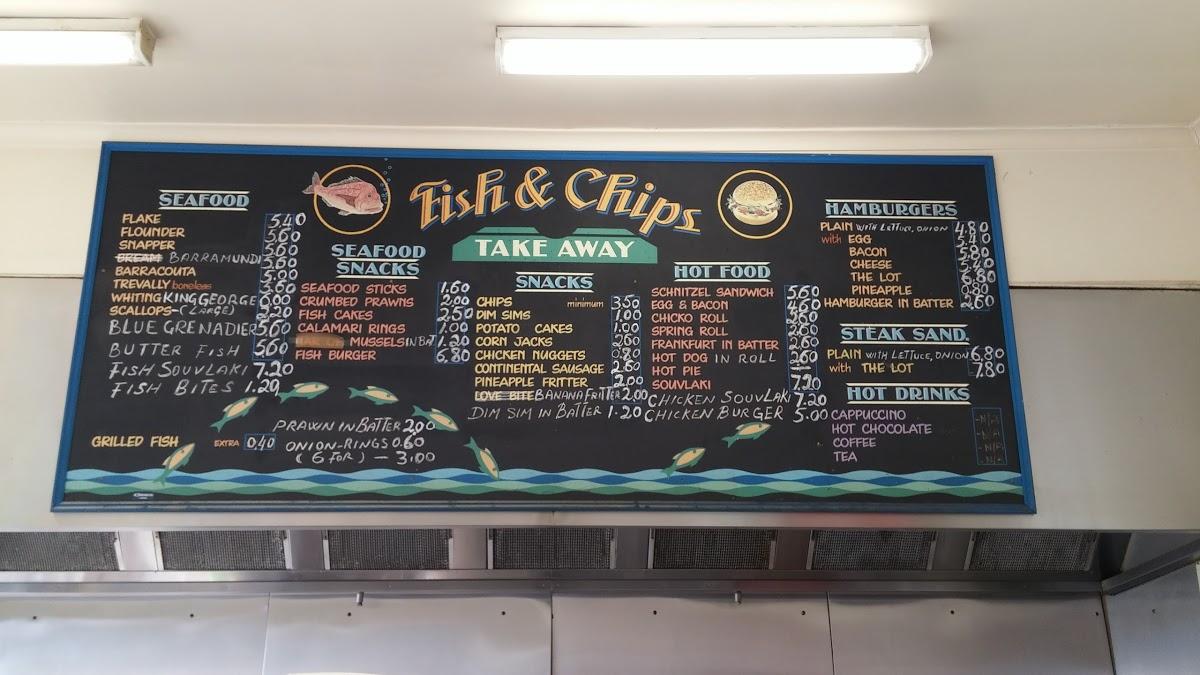 Fish & Chips
TAKE AWAY
SEAFOOD
FLAKE 5.40
FLOUNDER 5.60
SNAPPER 5.60
BREAM BARRAMUNDI 5.60
BARRACOUTA 5.00
TREVALLY boneless
WHITING KING GEORGE 6.00
SCALLOPS-(LARGE) 2.20
BLUE GRENADIER 5.60
BUTTER FISH 5.60
FISH SOUVLAKI 7.20
FISH BITES 1.20
GRILLED FISH EXTRA 0.40
SEAFOOD
SNACKS
SEAFOOD STICKS 1.60
CRUMBED PRAWNS 2.00
FISH CAKES 2.50
CALAMARI RINGS 1.00
MUSSELS IN BAT 1.20
FISH BURGER 6.80
PRAWN IN BATTER 2.00
ONION-RINGS 0.60
(6 FOR) - 3.00
SNACKS
CHIPS minimum 3.50
DIM SIMS 1.00
POTATO CAKES 1.00
CORN JACKS 2.60
CHICKEN NUGGETS 0.80
CONTINENTAL SAUSAGE 2.60
PINEAPPLE FRITTER 2.00
LOVE BITE BANANA FRITTER 2.00
DIM SIM IN BATTER 1.20
HOT FOOD
SCHNITZEL SANDWICH 5.60
EGG & BACON
CHICKO ROLL
SPRING ROLL 2.60
FRANKFURT IN BATTER 2.60
HOT DOG IN ROLL
HOT PIE
SOUVLAKI 7.20
CHICKEN SOUVLAKI 7.20
CHICKEN BURGER 5.00
HAMBURGERS
PLAIN WITH LETTUCE, ONION 4.80
with EGG 5.40
BACON
CHEESE
THE LOT
PINEAPPLE
HAMBURGER IN BATTER
STEAK SAND.
PLAIN WITH LETTUCE, ONION 6.80
with THE LOT 7.80
HOT DRINKS
CAPPUCCINO -N/A
HOT CHOCOLATE -N/A
COFFEE -N/A
TEA -N/A